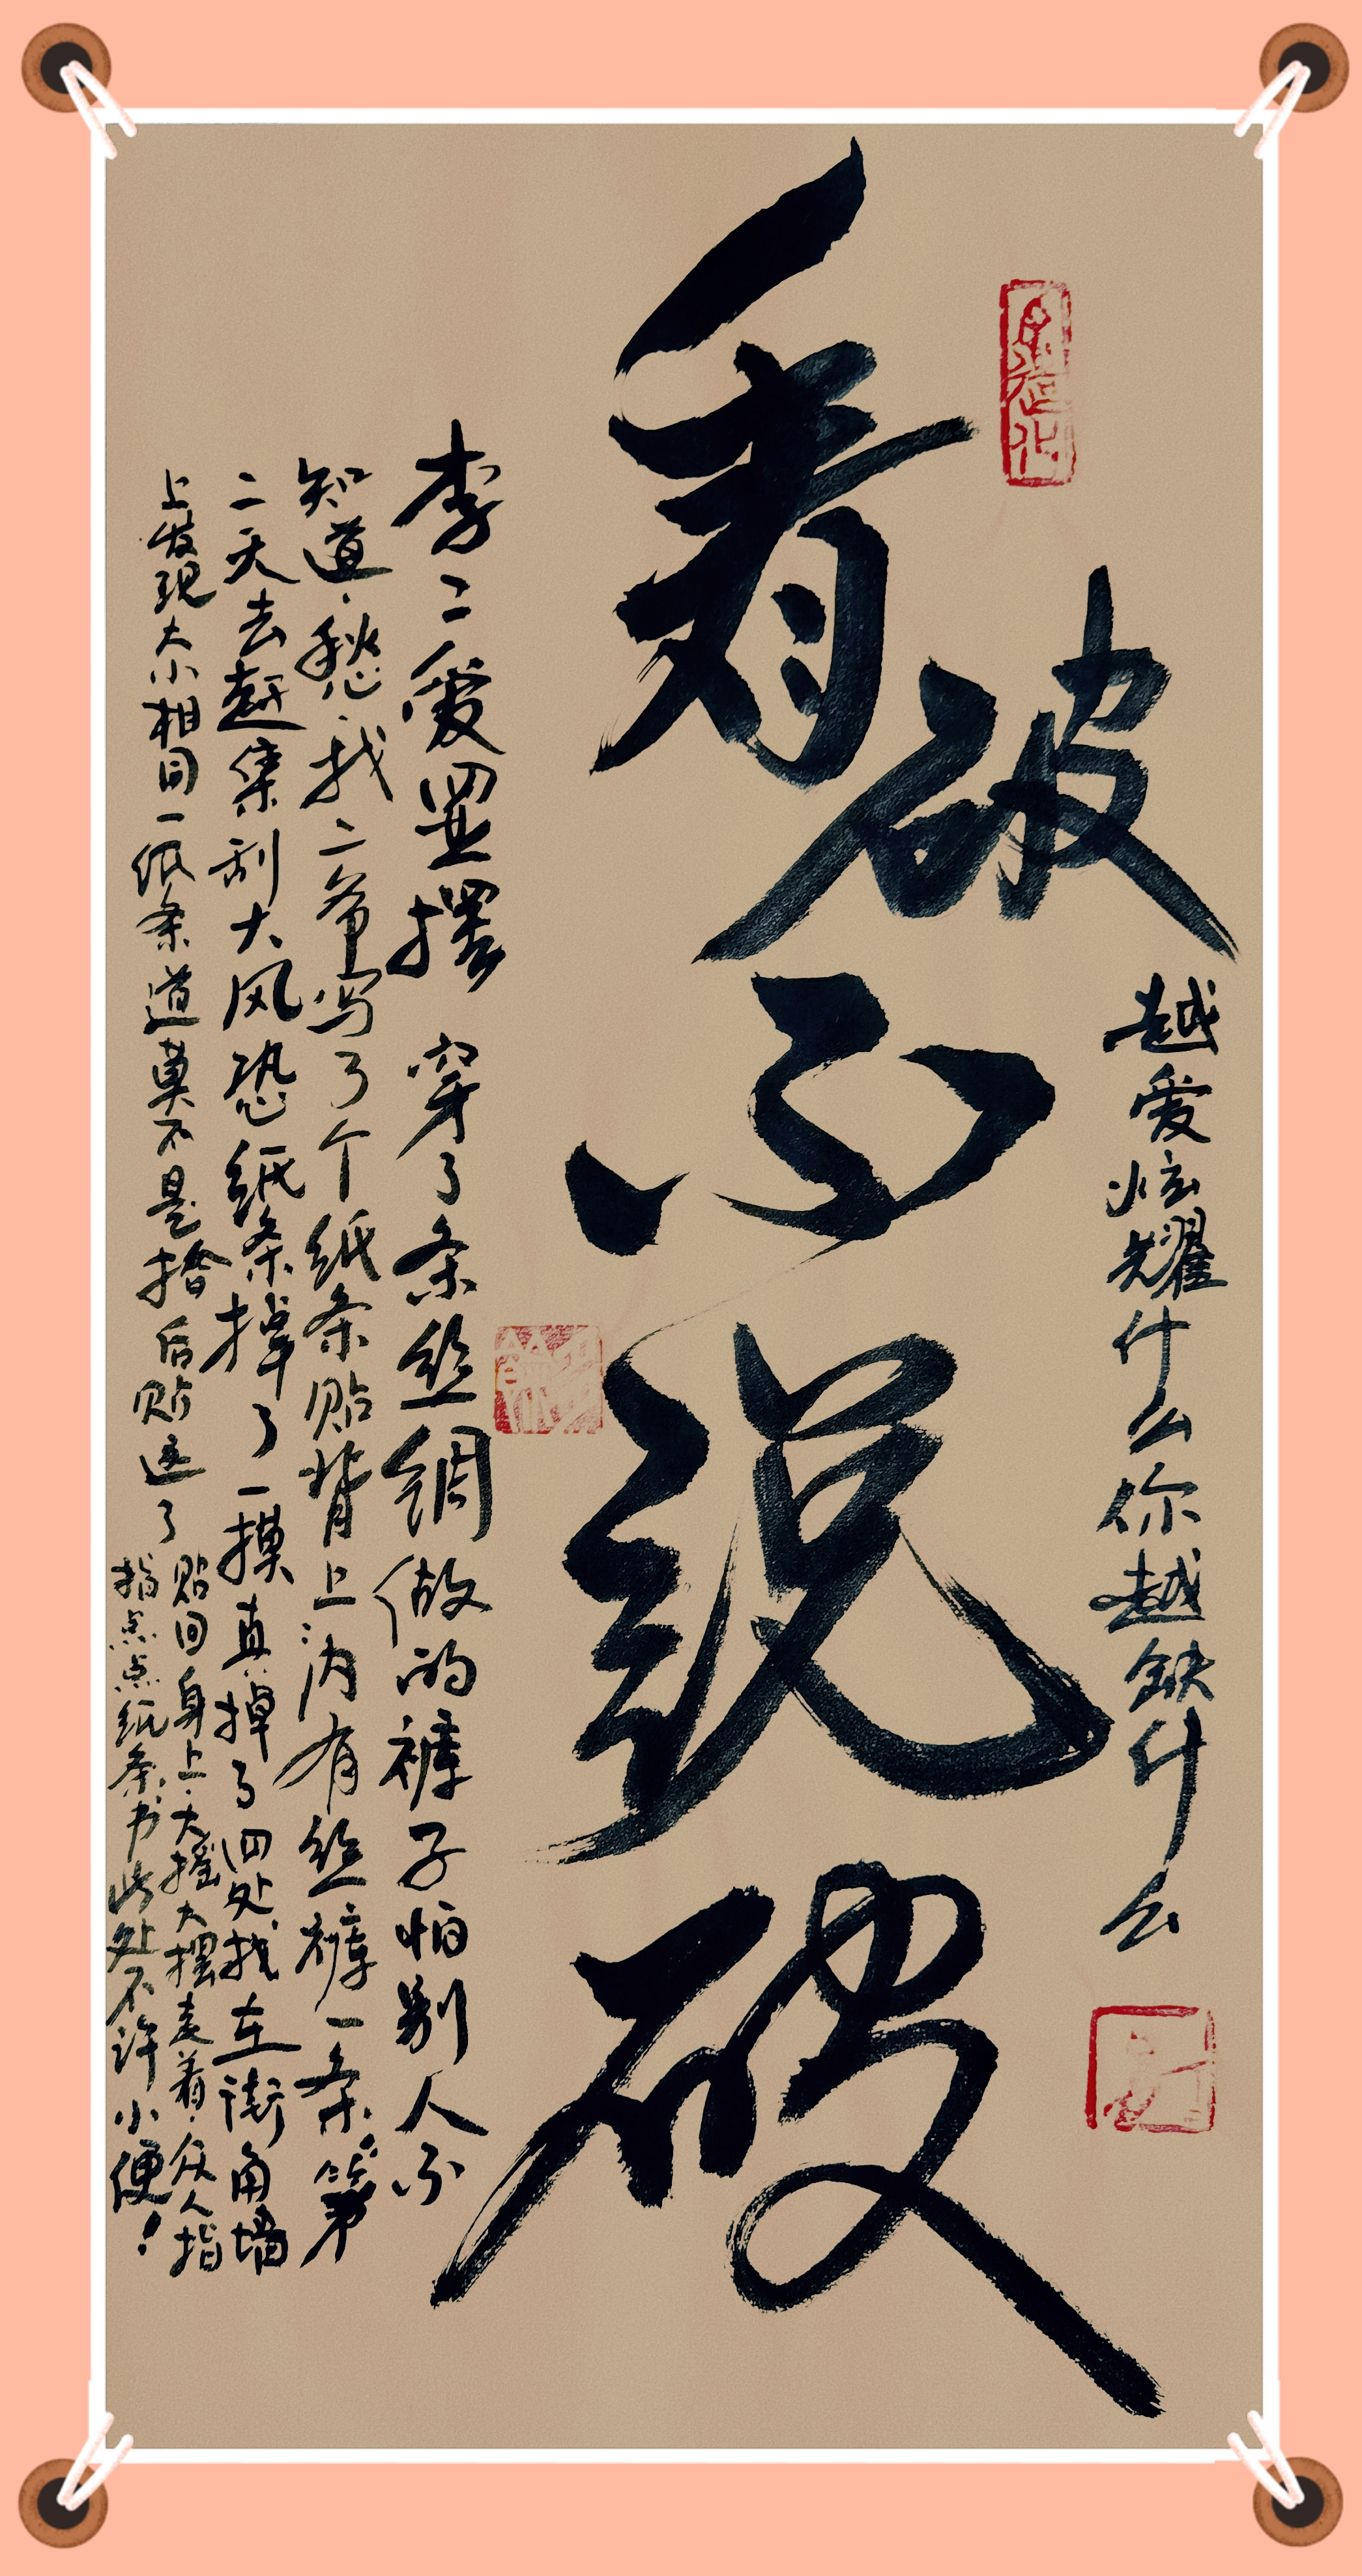 看破不说破
越爱炫耀什么你越缺什么
李二爱显摆 穿了条丝绸做的裤子怕别人不
知道、愁、找二爷写了个纸条贴背上"内有丝裤一条"第
二天去赶集刮大风恐纸条掉了一摸真掉了四处找在街角墙
上发现大小相同一纸条道莫不是拾后贴这了
贴回身上、大摇大摆走着、众人指
指点点纸条书此处不许小便！